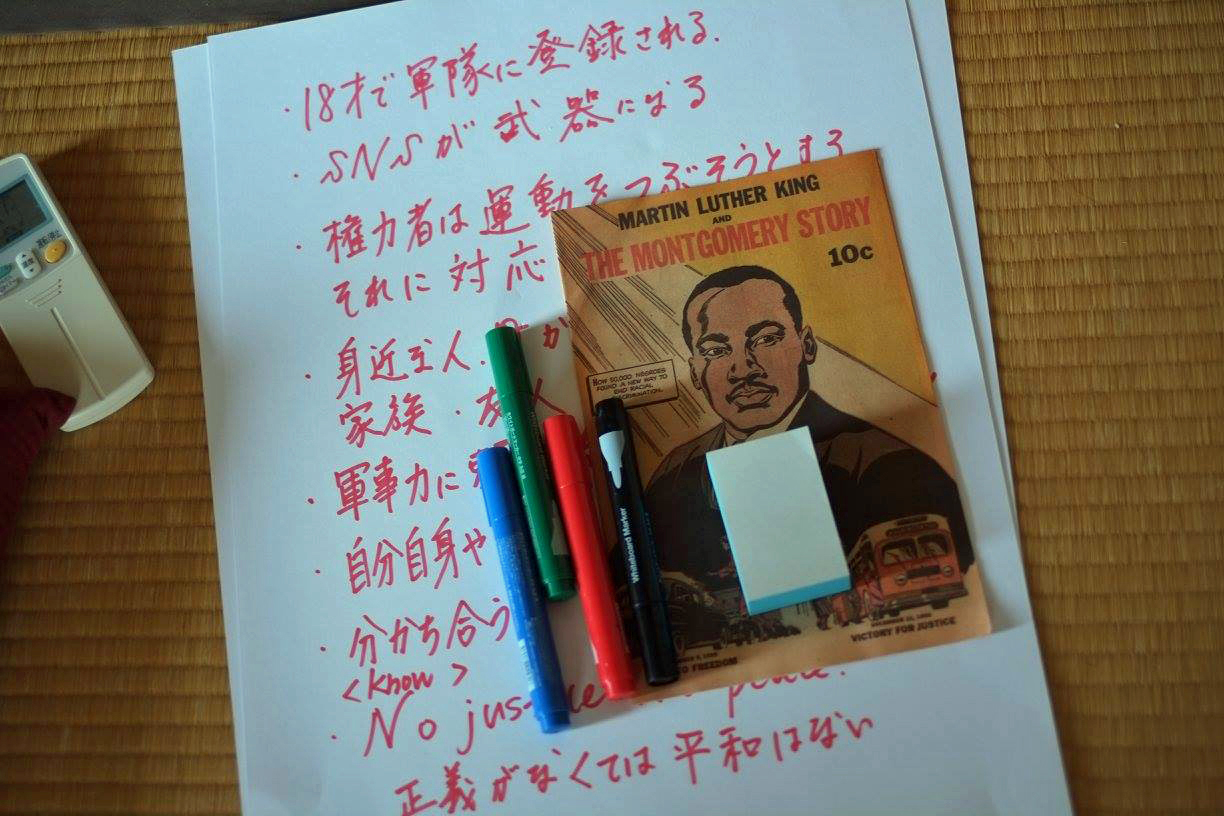 ・18才で軍隊に登録される.
・SNSが武器になる
・権力者は運動をつぶそうとする
それに対応
・身近な人.
家族・友人
・軍事力に
・自分自身や
・分かち合う
<know>
・No justice
正義がなくては平和はない
MARTIN LUTHER KING
AND
THE MONTGOMERY STORY
10c
HOW 50,000 NEGROES
FOUND A NEW WAY TO
END RACIAL
DISCRIMINATION.
TO FREEDOM
VICTORY FOR JUSTICE
Whiteboard Marker